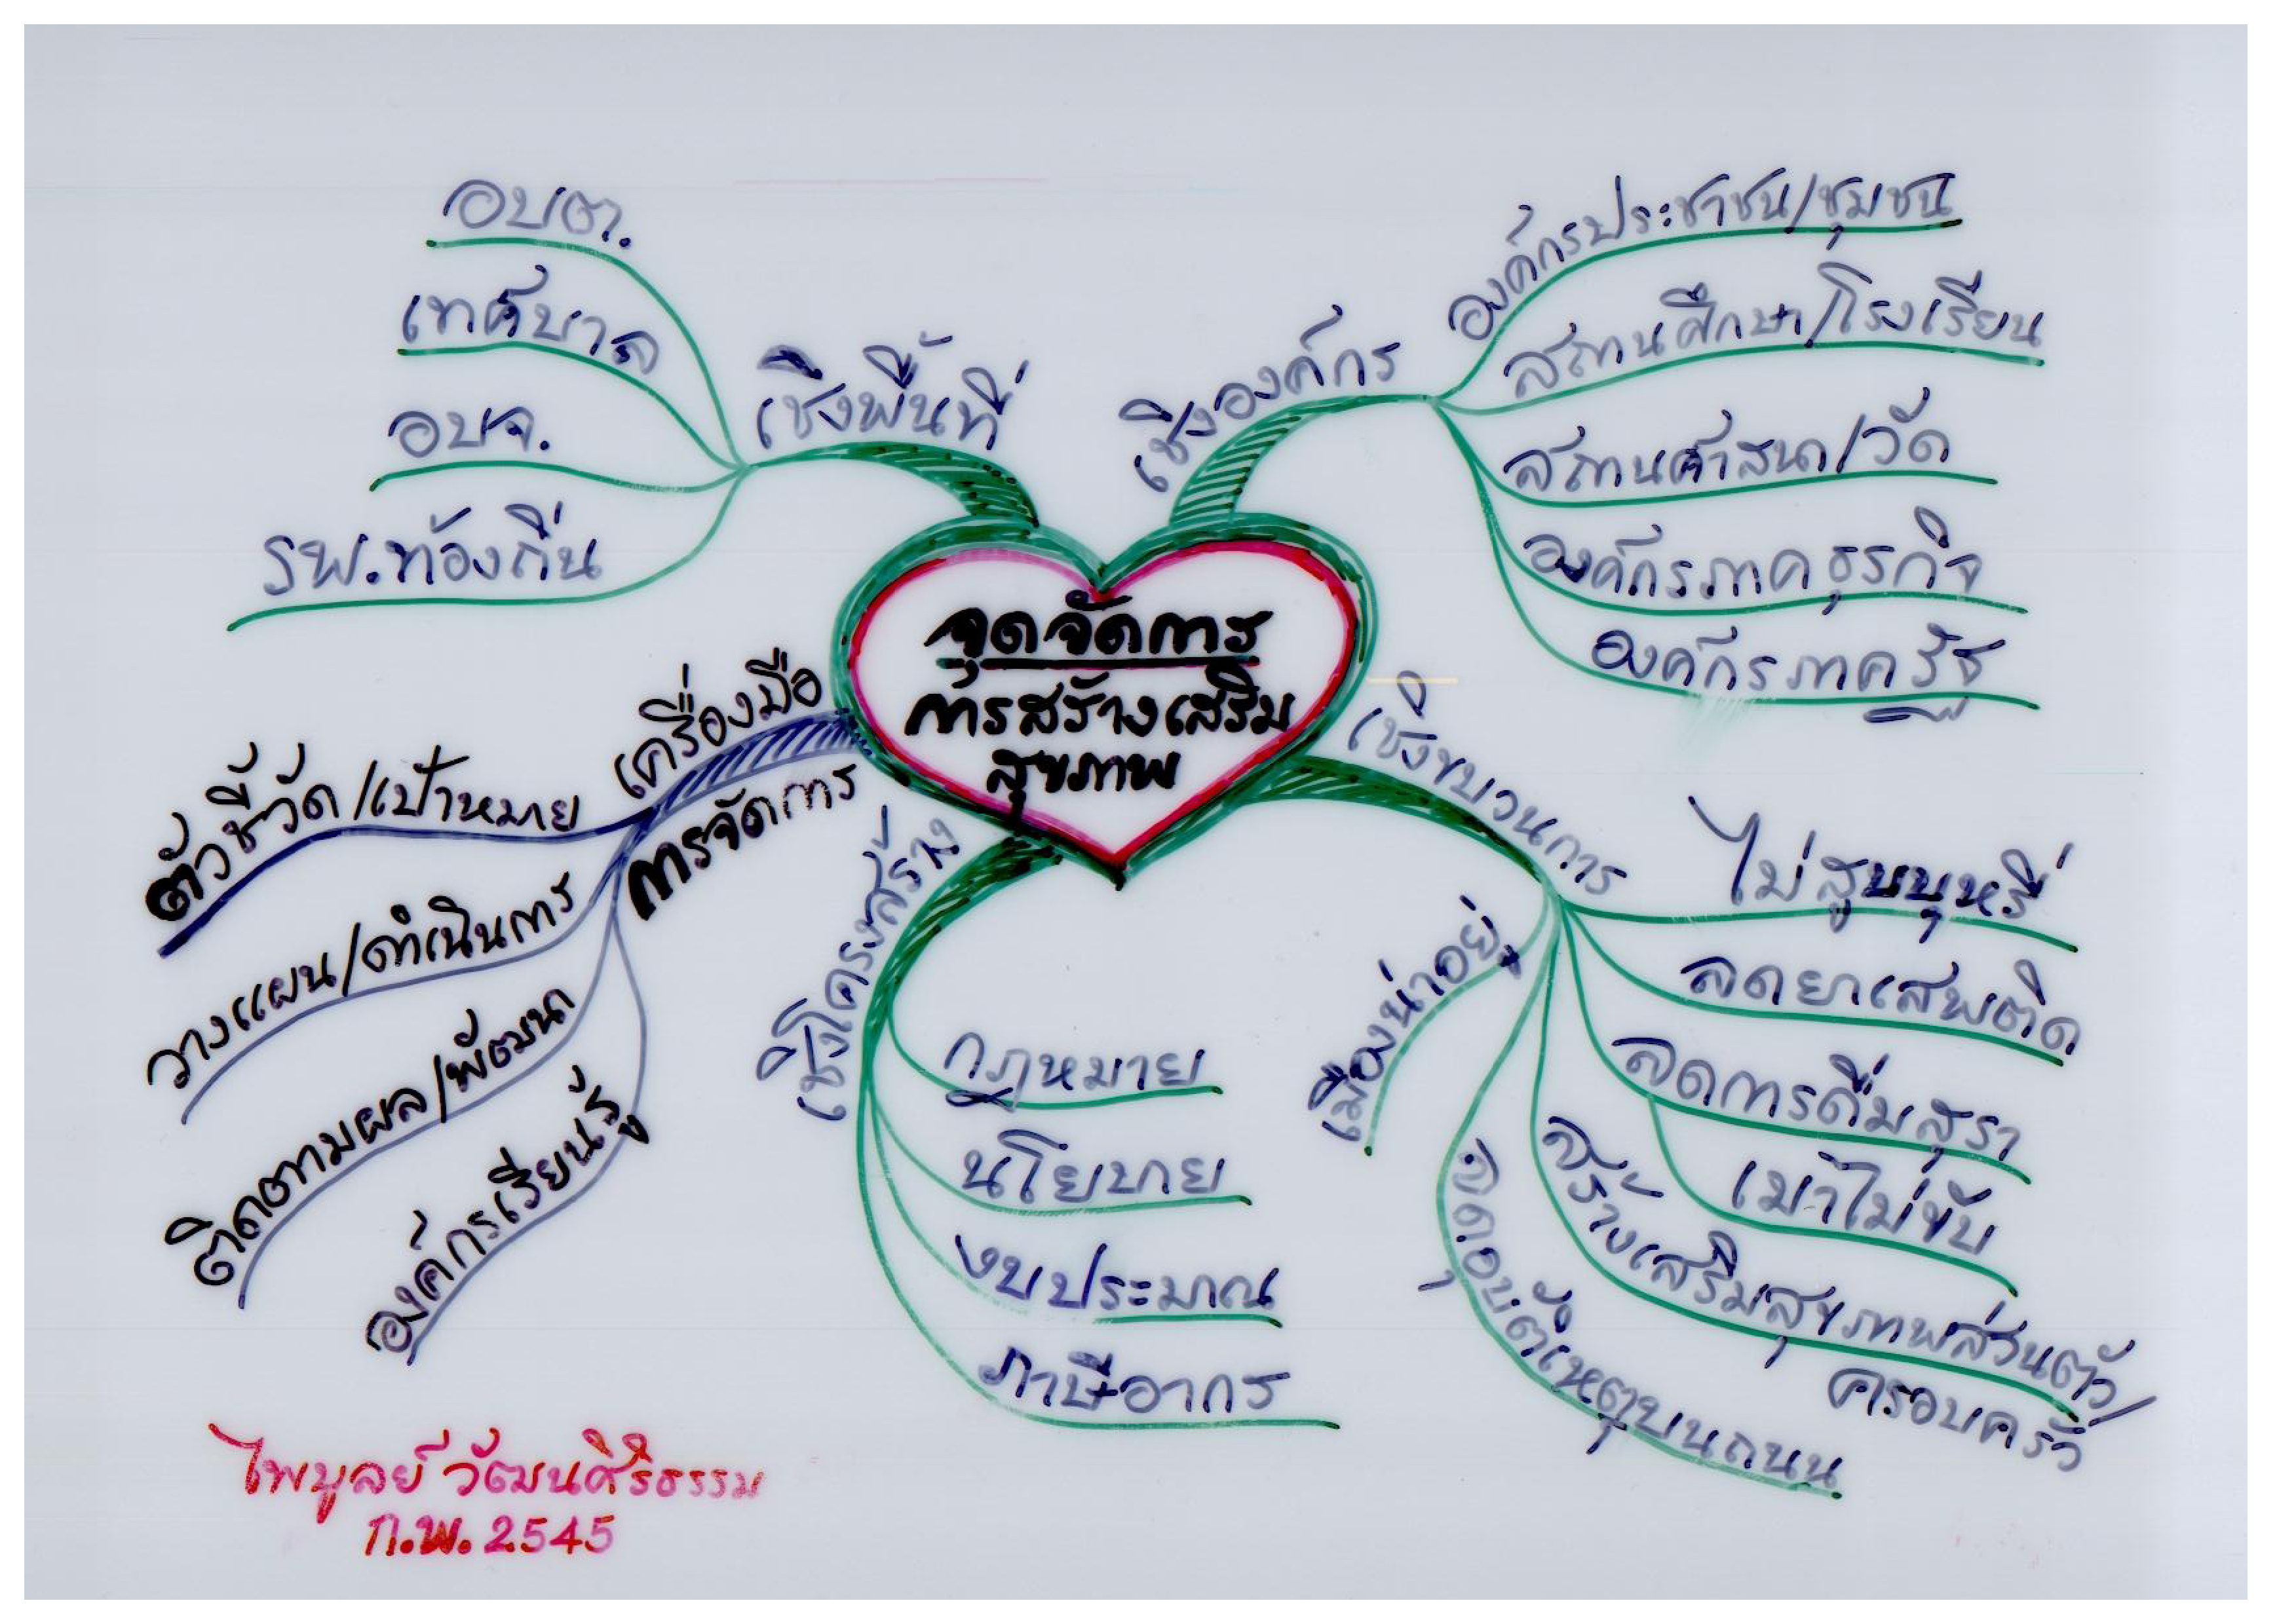 จุดจัดการ
การสร้างเสริม
สุขภาพ
เชิงพื้นที่
อบต.
เทศบาล
อบจ.
รพ.ท้องถิ่น
เชิงองค์กร
องค์กรประชาชน/ชุมชน
สถานศึกษา/โรงเรียน
สถานศาสนา/วัด
องค์กรภาคธุรกิจ
องค์กรภาครัฐ
เชิงขบวนการ
ไม่สูบบุหรี่
ลดยาเสพติด
ลดการดื่มสุรา
เมาไม่ขับ
สร้างเสริมสุขภาพส่วนตัว/
ครอบครัว
อุบัติเหตุบนถนน
เมืองน่าอยู่
เชิงโครงสร้าง
กฎหมาย
นโยบาย
งบประมาณ
ภาษีอากร
เครื่องมือ
การจัดการ
ตัวชี้วัด/เป้าหมาย
วางแผน/ดำเนินการ
ติดตามผล/พัฒนา
องค์กรเรียนรู้
ไพบูลย์ วัฒนศิริธรรม
ก.พ. 2545